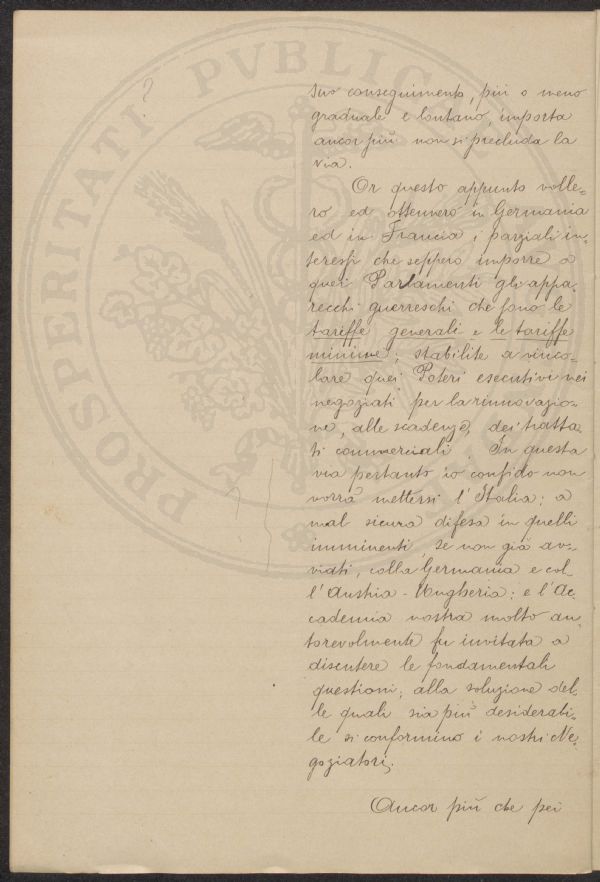 PROSPERITATI PVBLICAE
?
suo conseguimento, più o meno
graduale e lontano, importa
ancor più non si precluda la
via.
Or questo appunto volle-
ro ed ottennero in Germania
ed in Francia i parziali in-
teressi che seppero imporre a
quei Parlamenti gli appa-
recchi guerreschi che sono le
tariffe generali e le tariffe
minime; stabilite a vinco-
lare quei Poteri esecutivi nei
negoziati per la rinnovazio-
ne, alle scadenze, dei tratta-
ti commerciali. In questa
via pertanto io confido non
vorrà mettersi l'Italia; a
mal sicura difesa in quelli
imminenti, se non già av-
viati, colla Germania e col-
l'Austria-Ungheria; e l'Ac-
cademia nostra molto au-
torevolmente fu invitata a
discutere le fondamentali
questioni; alla soluzione del-
le quali sia più desiderabi-
le si conformino i nostri Ne-
goziatori.
Ancor più che pei